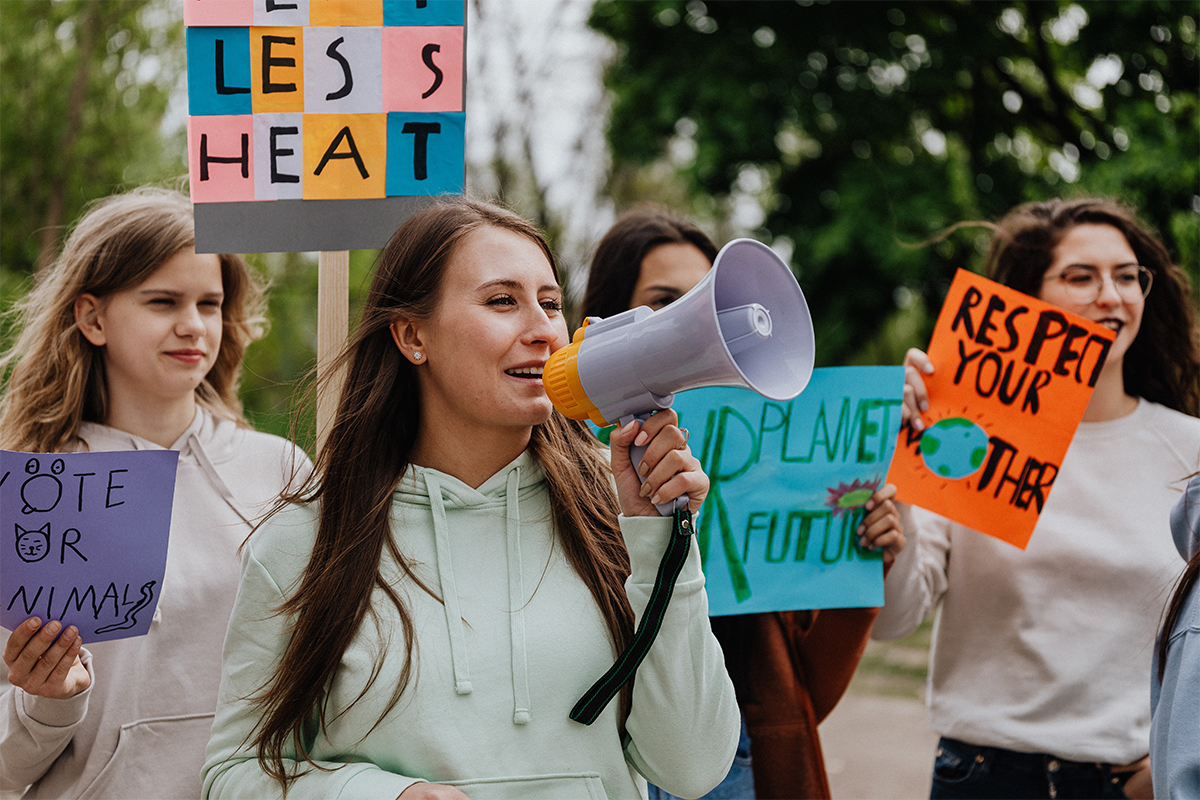 LESS
HEAT
VOTE
OR
NIMALS
PLANET
R
FUTUR
RESPECT
YOUR
MOTHER